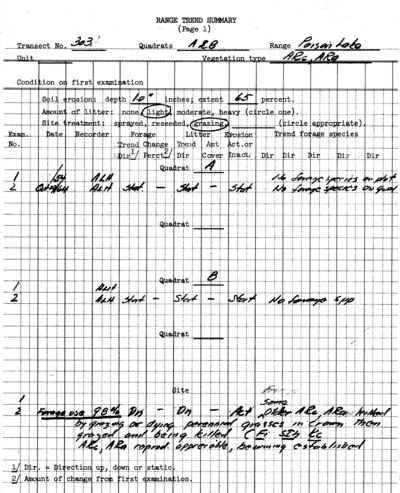 RANGE TREND SUMMARY
(Page 1)
Transect No. 303 Quadrats A & B Range Poison Lake
Unit Vegetation type ARc, ARa
Condition on first examination
Soil erosion: depth 1.0" inches; extent 65 percent.
Amount of litter: none, light, moderate, heavy (circle one).
Site treatment: sprayed, reseeded, grazing, (circle appropriate).
Exam. Date Recorder Forage Litter Erosion Trend forage species
No. Trend Change Trend Amt Act.or
Dir 1/ Perct 2/ Dir Cover Inact. Dir Dir Dir Dir Dir
Quadrat A
1 ALH No forage species on plot
2 ALH Stat. — Stat — Stat No forage species on quad
Quadrat
Quadrat B
1 ALH
2 ALH Stat — Stat — Stat No forage spp
Quadrat
Site
1
Some
2 Forage use 98% Dn — Dn — Act Older ARc, ARa killed
by grazing or dying, perennial grasses in crown then
grazed and being killed (Fi Sih Kc
ARc, ARa reprod appreciable, becoming established
1/ Dir. = Direction up, down or static.
2/ Amount of change from first examination.